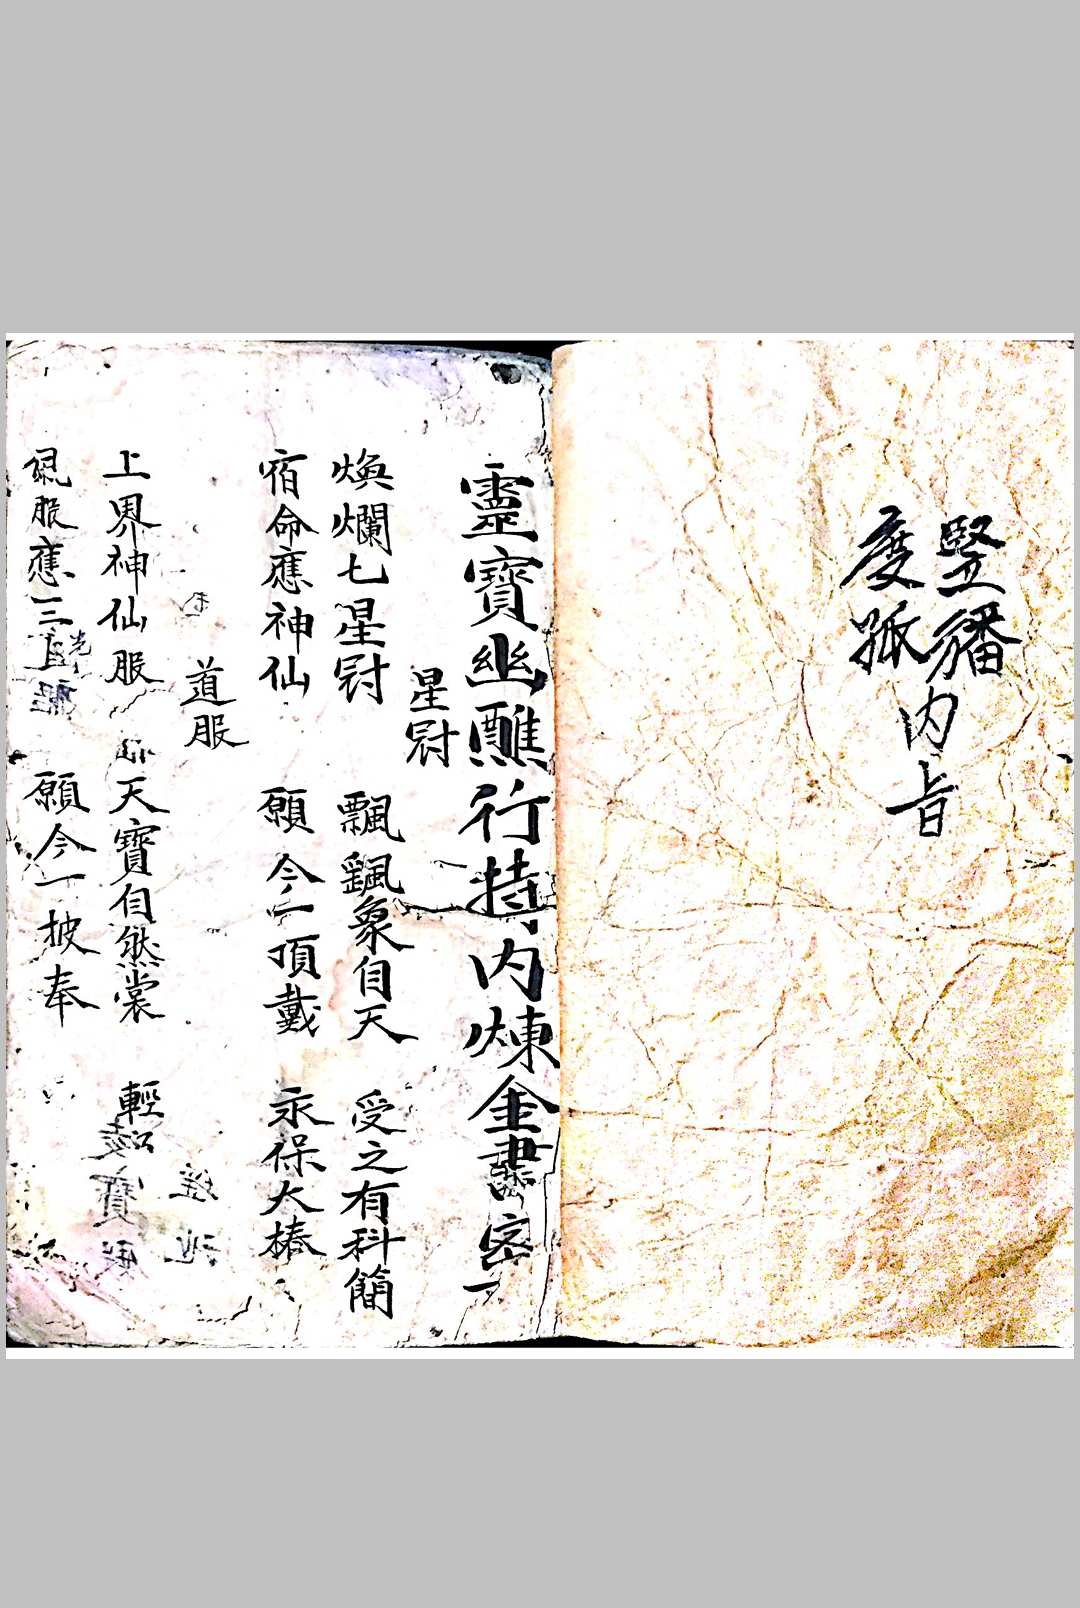 豎旛
度孤
內旨
靈寶幽醮行持內煉金書密
星冠
煥爛七星冠 飄飄象自天 受之有科簡
宿命應神仙 願今一頂戴 永保大椿
道服
上界神仙服 天寶自然裳 輕
佩服應三 願今一披奉